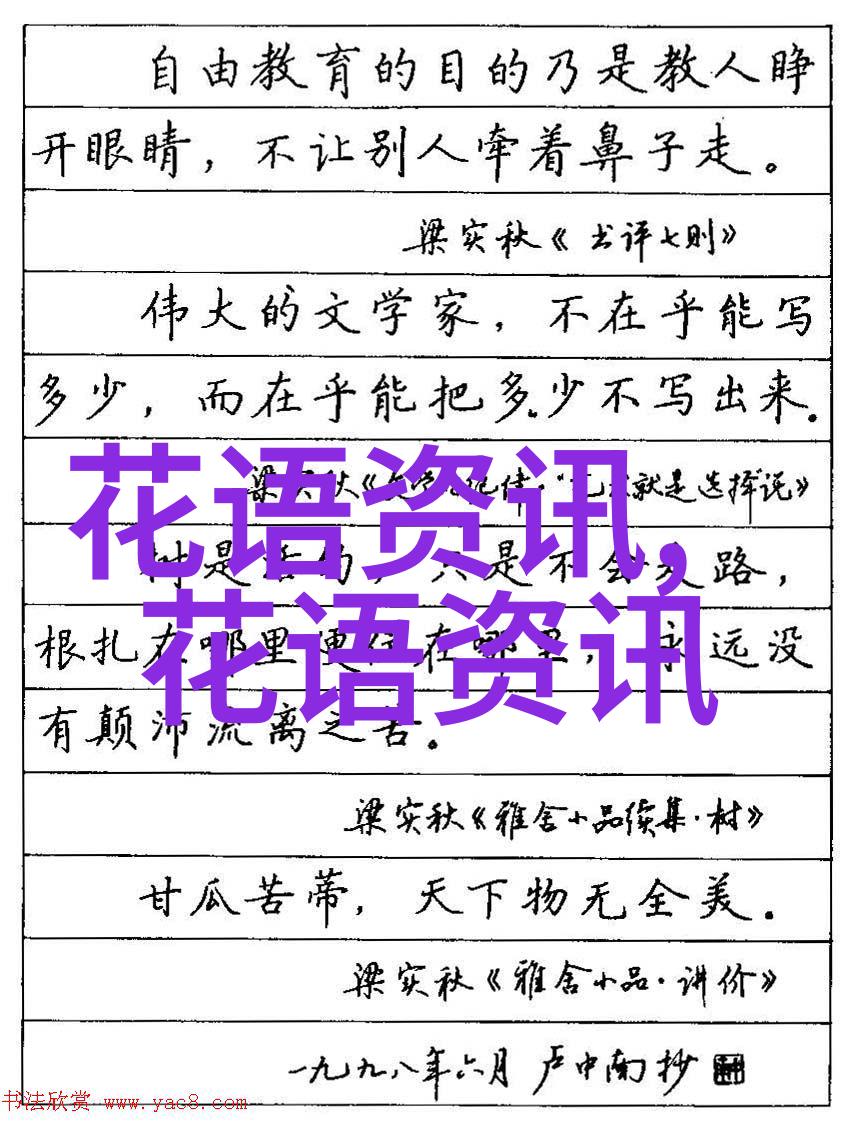 自由教育的目的乃是教人睁
开眼睛，不让别人牵着鼻子走。
梁实秋《书评七则》
伟大的文学家，不在乎能写
多少，而在乎能把多少不写出来。
梁实秋《 就是选择说》
花语资讯，
树是活的，只是不会走路，
花语资讯
根扎在哪里便住在哪里，永远没
有颠沛流离之苦。
梁实秋《雅舍小品续集·树》
甘瓜苦蒂，天下物无全美。
梁实秋《雅舍小品·讲价》
一九九八年六月 卢中南抄
书法欣赏 www.yac8.com